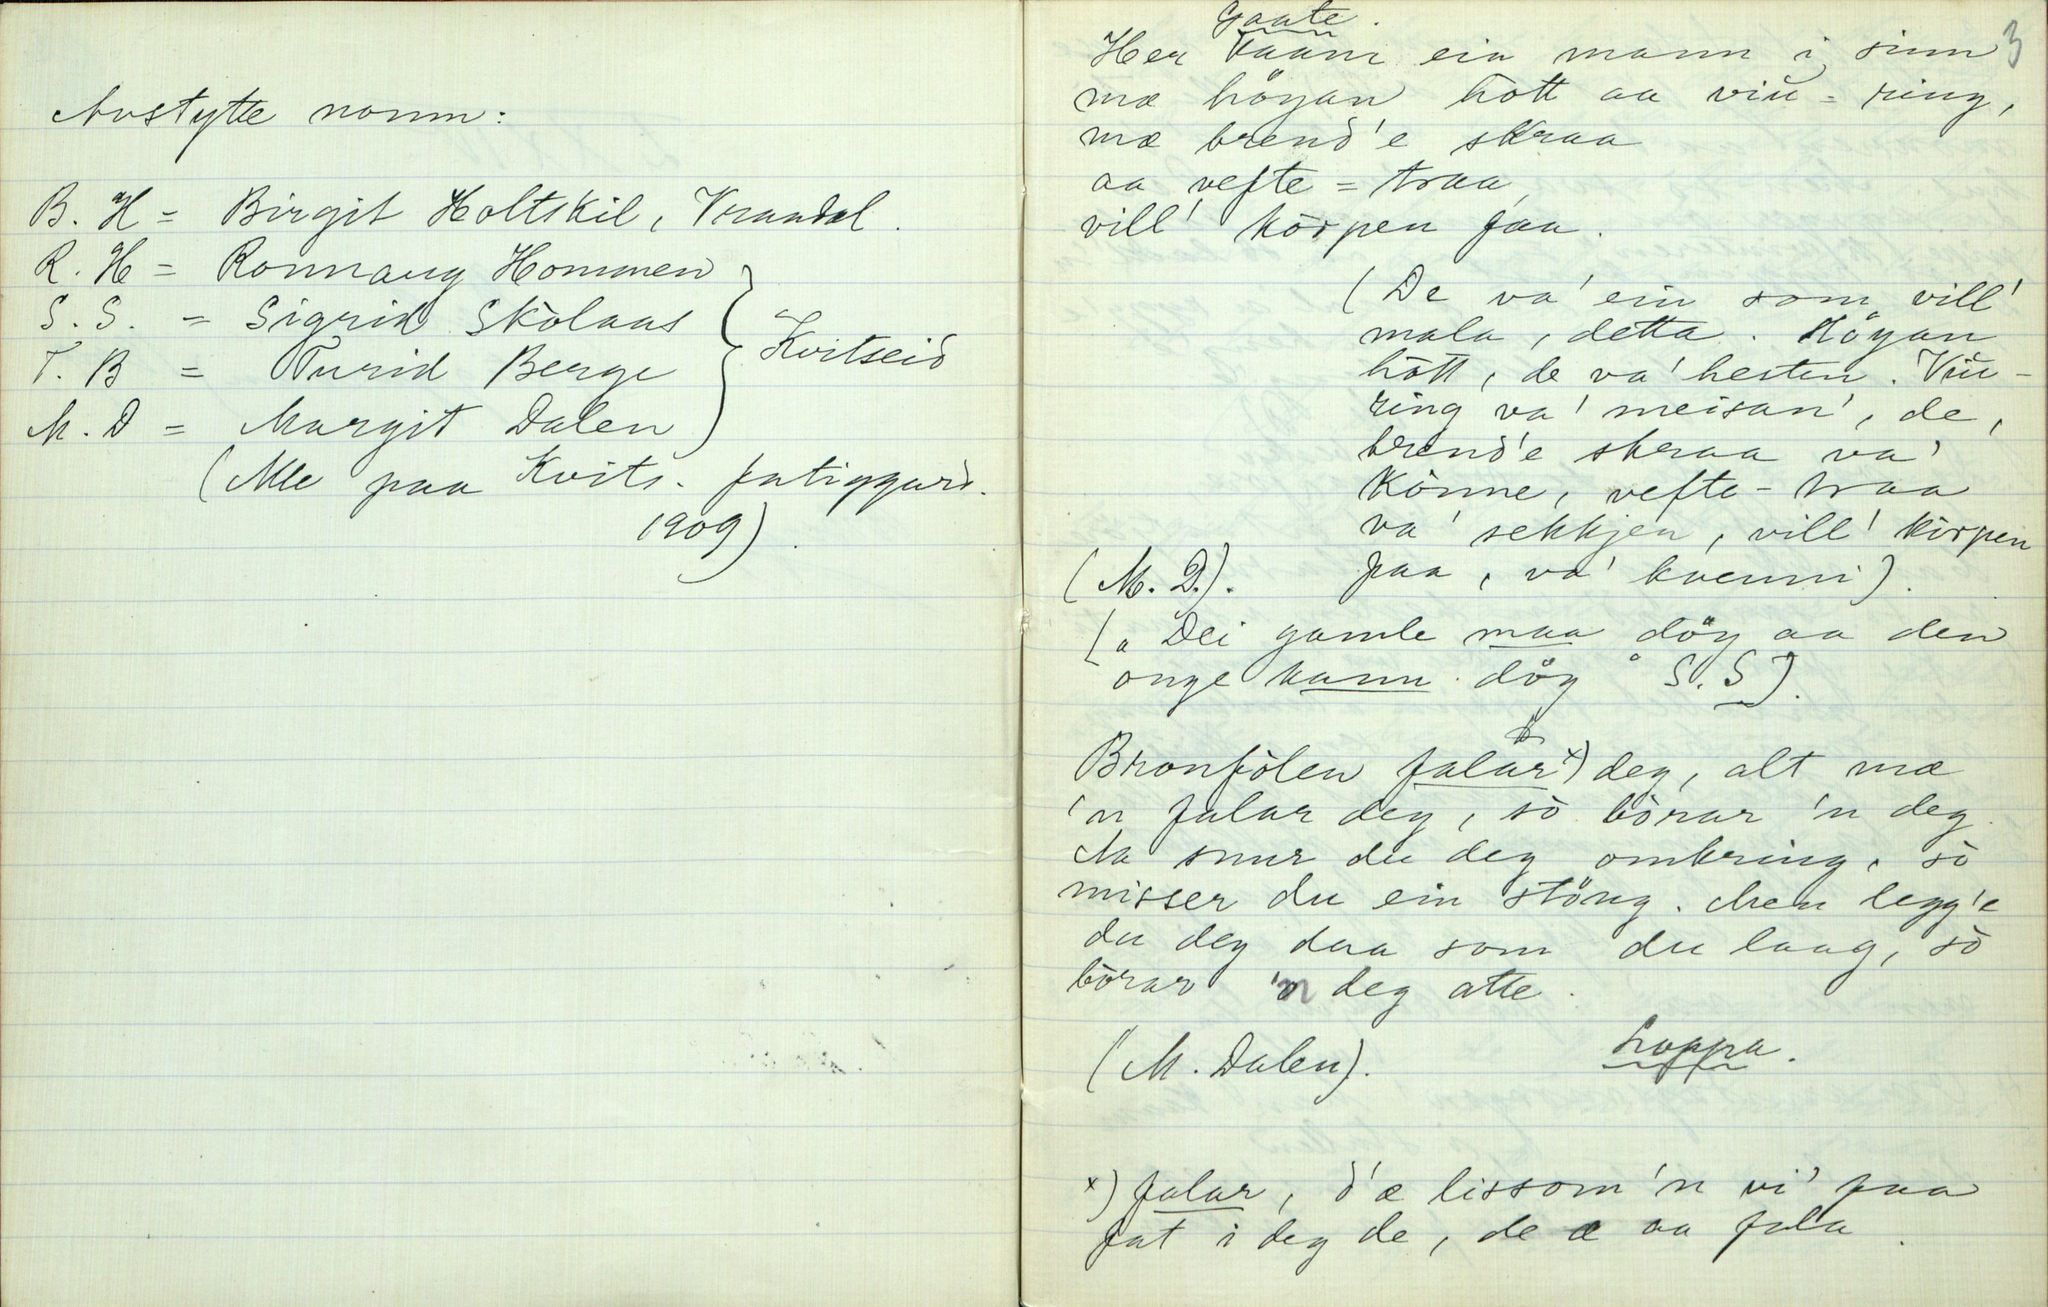 Avstytte nomn:
B. H = Birgit Holtskil, Vraadal.
R. H = Ronnaug Hommen
S. S. = Sigrid Skòlaas
T. B = Turid Berge
M. D = Margit Dalen
Kvitseid
(Alle paa Kvits. fatiggard.
1909)
3
Gaate.
Her kaam ein mann i sinn
mæ högan hott aa viu=ring,
mæ brend'e skraa
aa vefte=traa
vill' körpen faa.
(De va' ein som vill'
mala, detta. Högan
hött, de va' hesten. Viu-
ring va' meisan', de,
brend'e skraa va'
könne, vefte-traa
va' sekkjen, vill' körpen
faa, va' kvenni).
(M. D.).
("Dei gamle maa döy aa den
onge kann döy" S. S).
Bronfölen falar x) deg, alt mæ
'n falar deg, sò börar 'n deg.
Aa snur du deg ombring, sò
misser du ein stöng. Men legg'e
du deg daa som du laag, sò
börar 'n deg atte.
(M. Dalen).
Loppa.
x) falar, d'æ lissom 'n vi' faa
fat i deg de, de æ aa fala.